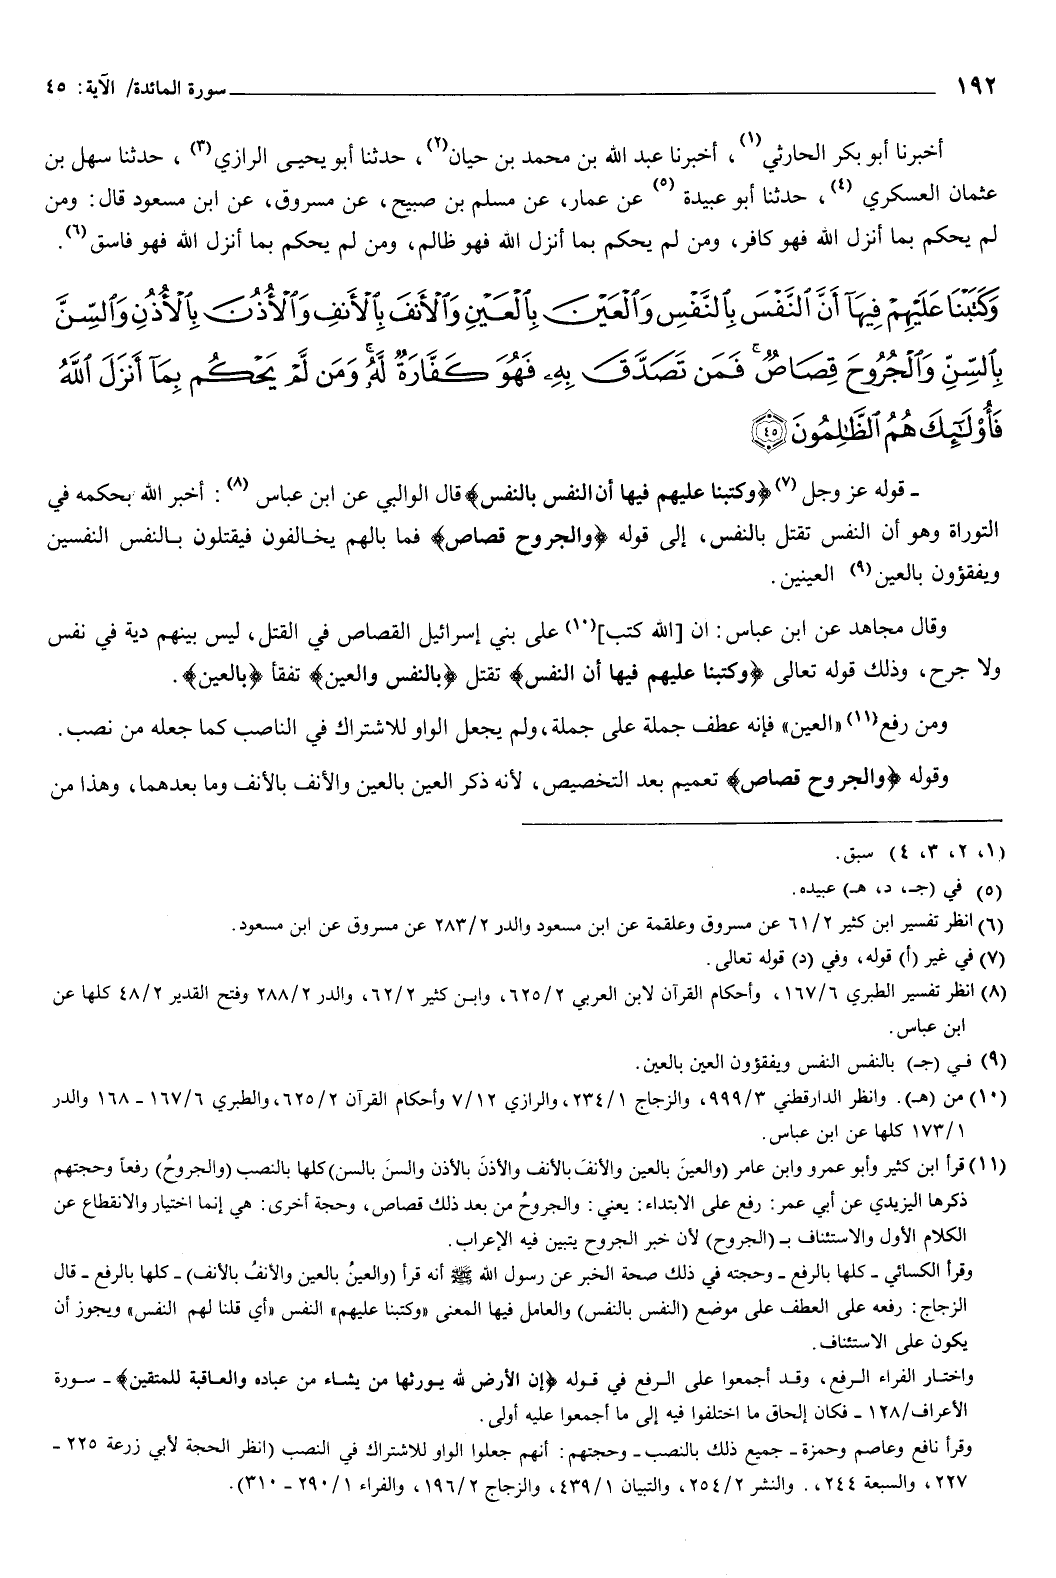 ١٩٢ ــــــــ سورة المائدة/ الآية: ٤٥
أخبرنا أبو بكر الحارثي(١)، أخبرنا عبد الله بن محمد بن حيان(٢)، حدثنا أبو يحيى الرازي(٣)، حدثنا سهل بن
عثمان العسكري (٤)، حدثنا أبو عبيدة (٥) عن عمار، عن مسلم بن صبيح، عن مسروق، عن ابن مسعود قال: ومن
لم يحكم بما أنزل الله فهو كافر، ومن لم يحكم بما أنزل الله فهو ظالم، ومن لم يحكم بما أنزل الله فهو فاسق(٦).
وَكَتَبْنَا عَلَيْهِمْ فِيهَآ أَنَّ ٱلنَّفْسَ بِٱلنَّفْسِ وَٱلْعَيْنَ بِٱلْعَيْنِ وَٱلْأَنفَ بِٱلْأَنفِ وَٱلْأُذُنَ بِٱلْأُذُنِ وَٱلسِّنَّ
بِٱلسِّنِّ وَٱلْجُرُوحَ قِصَاصٌ ۚ فَمَن تَصَدَّقَ بِهِۦ فَهُوَ كَفَّارَةٌ لَّهُۥ ۚ وَمَن لَّمْ يَحْكُم بِمَآ أَنزَلَ ٱللَّهُ
فَأُو۟لَـٰٓئِكَ هُمُ ٱلظَّـٰلِمُونَ ٤٥
ـ قوله عز وجل (٧) ﴿وكتبنا عليهم فيها أن النفس بالنفس﴾ قال الوالبي عن ابن عباس (٨): أخبر الله بحكمه في
التوراة وهو أن النفس تقتل بالنفس، إلى قوله ﴿والجروح قصاص﴾ فما بالهم يخالفون فيقتلون بالنفس النفسين
ويفقؤون بالعين(٩) العينين.
وقال مجاهد عن ابن عباس: ان [الله كتب](١٠) على بني إسرائيل القصاص في القتل، ليس بينهم دية في نفس
ولا جرح، وذلك قوله تعالى ﴿وكتبنا عليهم فيها أن النفس﴾ تقتل ﴿بالنفس والعين﴾ تفقأ ﴿بالعين﴾.
ومن رفع(١١) «العين» فإنه عطف جملة على جملة، ولم يجعل الواو للاشتراك في الناصب كما جعله من نصب.
وقوله ﴿والجروح قصاص﴾ تعميم بعد التخصيص، لأنه ذكر العين بالعين والأنف بالأنف وما بعدهما، وهذا من
(١، ٢، ٣، ٤) سبق.
(٥) في (جـ، د، هـ) عبيده.
(٦) انظر تفسير ابن كثير ٦١/٢ عن مسروق وعلقمة عن ابن مسعود والدر ٢٨٣/٢ عن مسروق عن ابن مسعود.
(٧) في غير (أ) قوله، وفي (د) قوله تعالى.
(٨) انظر تفسير الطبري ١٦٧/٦، وأحكام القرآن لابن العربي ٦٢٥/٢، وابن كثير ٦٢/٢، والدر ٢٨٨/٢ وفتح القدير ٤٨/٢ كلها عن
ابن عباس.
(٩) في (جـ) بالنفس النفس ويفقؤون العين بالعين.
(١٠) من (هـ). وانظر الدارقطني ٩٩٩/٣، والزجاج ٢٣٤/١، والرازي ٧/١٢ وأحكام القرآن ٦٢٥/٢، والطبري ١٦٧/٦ ـ ١٦٨ والدر
١٧٣/١ كلها عن ابن عباس.
(١١) قرأ ابن كثير وأبو عمرو وابن عامر (والعينَ بالعين والأنفَ بالأنف والأذنَ بالأذن والسنَ بالسن) كلها بالنصب (والجروحُ) رفعاً وحجتهم
ذكرها اليزيدي عن أبي عمر: رفع على الابتداء: يعني: والجروحُ من بعد ذلك قصاص، وحجة أخرى: هي إنما اختيار والانقطاع عن
الكلام الأول والاستئناف بـ (الجروح) لأن خبر الجروح يتبين فيه الإعراب.
وقرأ الكسائي ـ كلها بالرفع ـ وحجته في ذلك صحة الخبر عن رسول الله ﷺ أنه قرأ (والعينُ بالعين والأنفُ بالأنف) ـ كلها بالرفع ـ قال
الزجاج: رفعه على العطف على موضع (النفس بالنفس) والعامل فيها المعنى «وكتبنا عليهم» النفس «أي قلنا لهم النفس» ويجوز أن
يكون على الاستئناف.
واختار الفراء الرفع، وقد أجمعوا على الرفع في قوله ﴿إن الأرض لله يورثها من يشاء من عباده والعاقبة للمتقين﴾ ـ سورة
الأعراف/١٢٨ ـ فكان إلحاق ما اختلفوا فيه إلى ما أجمعوا عليه أولى.
وقرأ نافع وعاصم وحمزة ـ جميع ذلك بالنصب ـ وحجتهم: أنهم جعلوا الواو للاشتراك في النصب (انظر الحجة لأبي زرعة ٢٢٥ ـ
٢٢٧، والسبعة ٢٤٤،. والنشر ٢٥٤/٢، والتبيان ٤٣٩/١، والزجاج ١٩٦/٢، والفراء ٢٩٠/١ ـ ٣١٠).